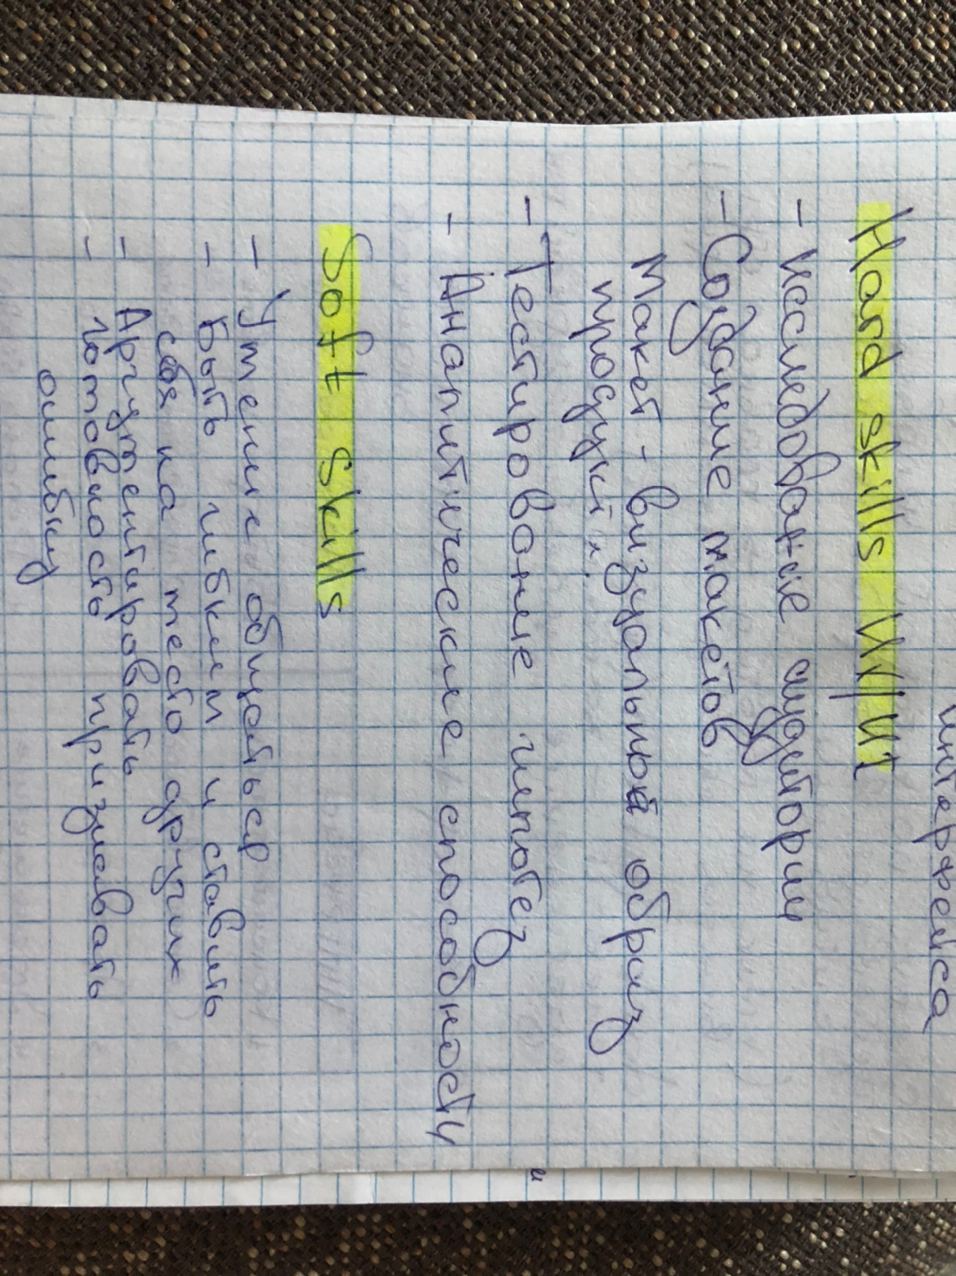 интерфейса
Hard skills UX/UI
- Исследование аудитории
- Создание макетов
Макет - визуальный образ
продукта.
- Тестирование гипотез
- Аналитические способности
Soft skills
- Умение общаться
- Быть гибким и ставить
себя на место других
- Аргументировать
- готовность признавать
ошибку